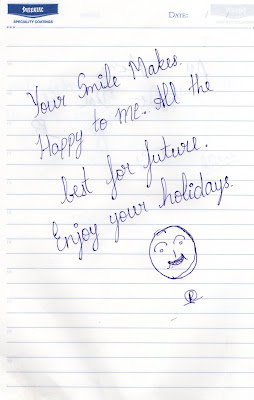 SPECIALITY COATINGS
DATE: /
Your Smile Makes.
Happy to me. All the
best for future.
Enjoy your holidays.